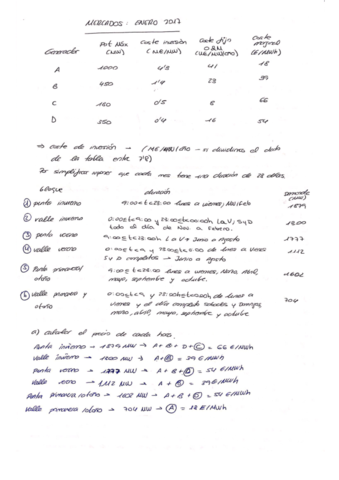 MERCADOS: ENERO 2017
Generador Pot Máx (MW) Coste inversión (M€/MW) Coste fijo O&M Coste marginal (€/MWh)
A 1000 4'5 41 18
B 450 1'4 39
C 150 0'5 6 66
D 350 0'4 16 54
⇒ coste de inversión → si dividimos el dato
de la tabla ente
Por simplificar suponer que cada mes tiene una duración de 28 días.
bloque duración demanda (MW)
① punta invierno 9:00≤t<23:00h lunes a viernes, 1879
② valle invierno 0:00≤t<9:00 y 23:00≤t<00:00h L a V, S y D 1200
todo el día de Nov a Febrero.
③ punta verano 9:00≤t<23:00h L a V Junio a Agosto 1777
④ valle verano 0:00≤t<9:00 y 23:00≤t<00:00 de lunes a viernes 1112
S y D completos → Junio a Agosto
⑤ Punta primavera/ 9:00≤t<23:00 lunes a viernes, Marzo, Abril, 1602
otoño mayo, septiembre y octubre.
⑥ valle primavera y 0:00≤t<9 y 23:00≤t<00:00h de lunes a 704
otoño viernes y el día completo sábados y domingos,
marzo, abril, mayo, septiembre y octubre.
a) calcular el precio de cada hora.
Punta invierno → 1879 MW → A + B + D + C = 66 €/MWh
Valle invierno → 1200 MW → A + B = 39 €/MWh
Punta verano → 1777 MW → A + B + D = 54 €/MWh
Valle verano → 1112 MW → A + B = 39 €/MWh
Punta primavera/otoño → 1602 MW → A + B + D = 54 €/MWh
Valle primavera/otoño → 704 MW → A = 18 €/MWh